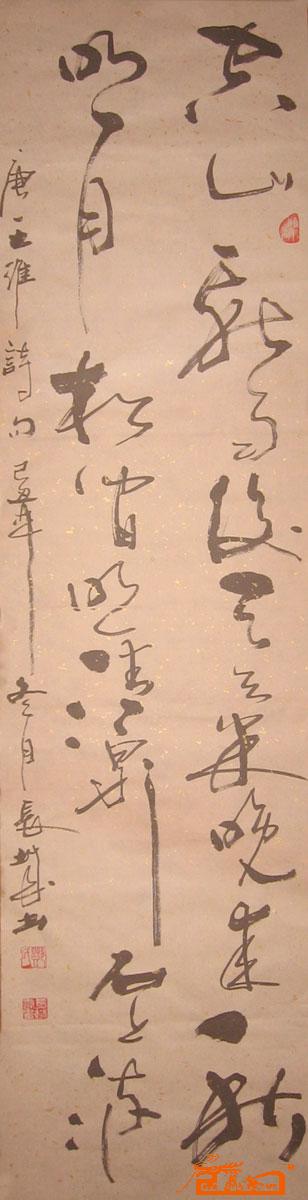 空山新雨後天氣晚來秋
明月松間照清泉石上流
唐王維詩句己丑年冬月長城